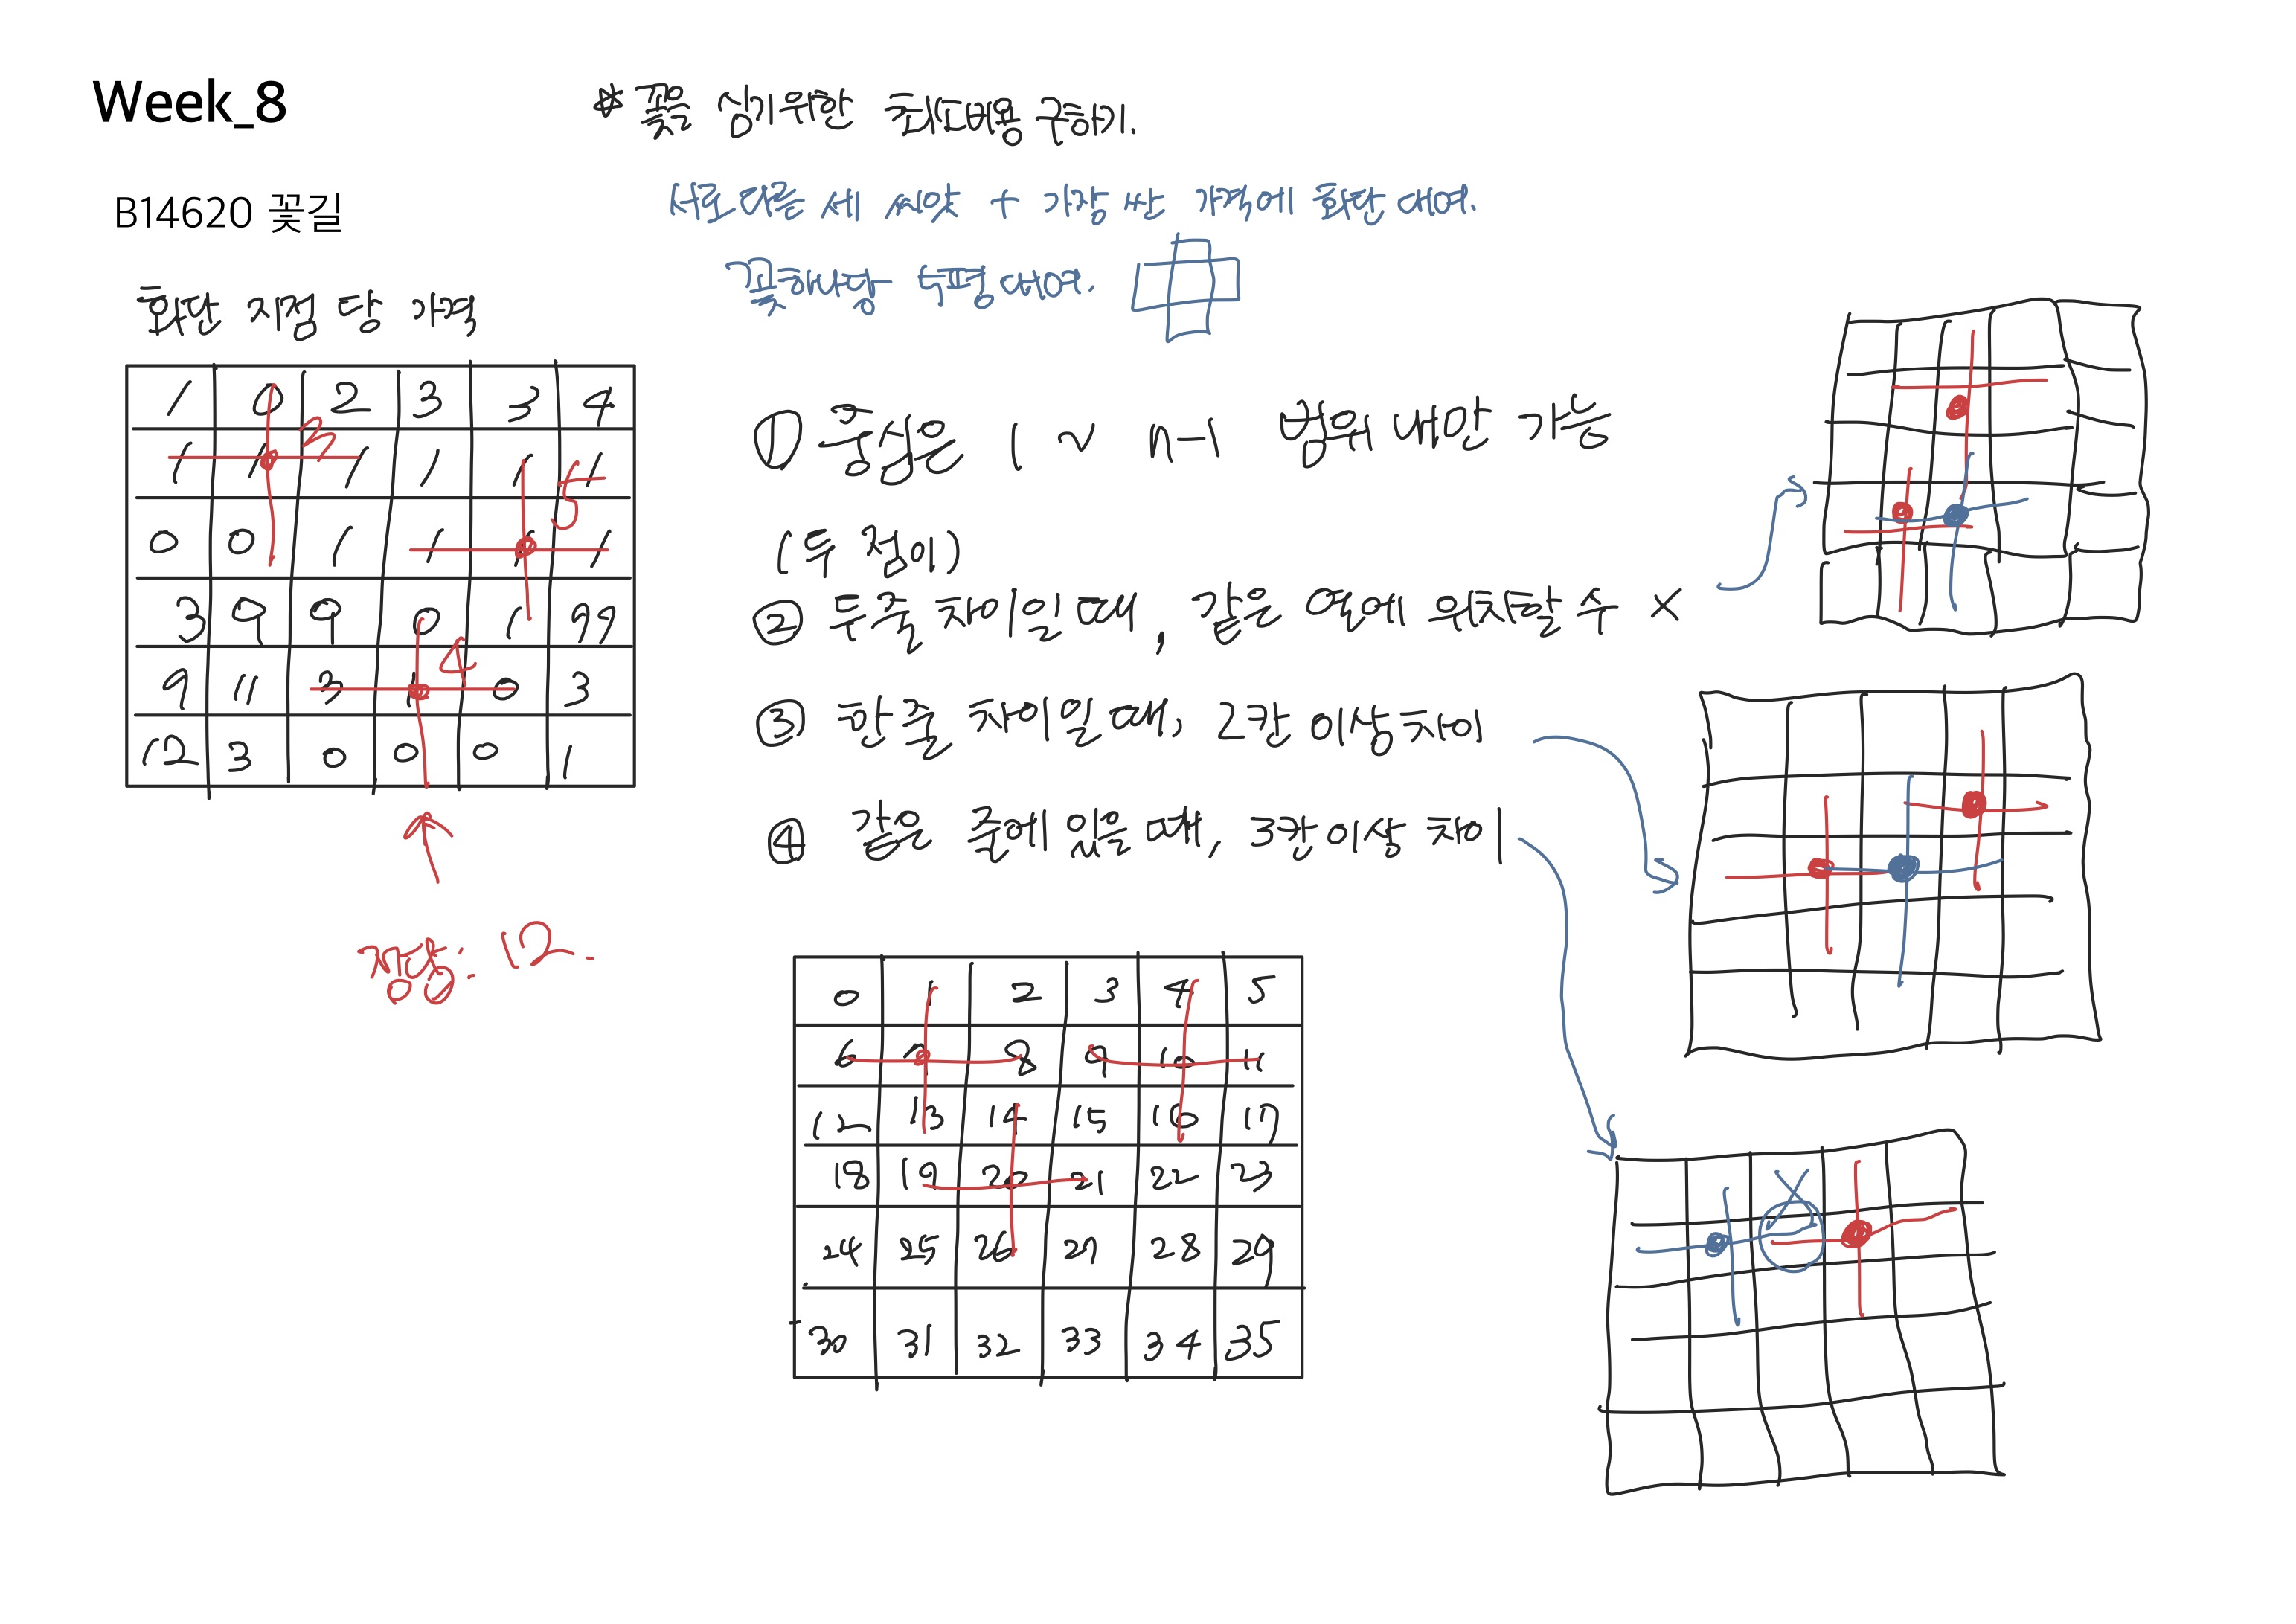 Week_8
* 꽃을 심기위한 최소비용 구하기.
B14620 꽃길
서로 다른 세 씨앗 + 가장 싼 가격에 화단 대여.
꽃하나당 5평 대여.
화단 지점 당 가격
1 0 2 3 3 4
1 1 1 1 1 1
0 0 1 1 1 1
3 9 9 0 1 99
9 11 3 1 0 3
12 3 0 0 0 1
3
5
4
정답: 12.
① 중심은 1 ~ n-1 범위 내만 가능
(두 점이)
② 두줄 차이일 때, 같은 열에 위치할 수 X
③ 한 줄 차이일 때, 2칸 이상 차이
④ 같은 줄에 있을 때, 3칸 이상 차이
0 1 2 3 4 5
6 7 8 9 10 11
12 13 14 15 16 17
18 19 20 21 22 23
24 25 26 27 28 29
30 31 32 33 34 35
X